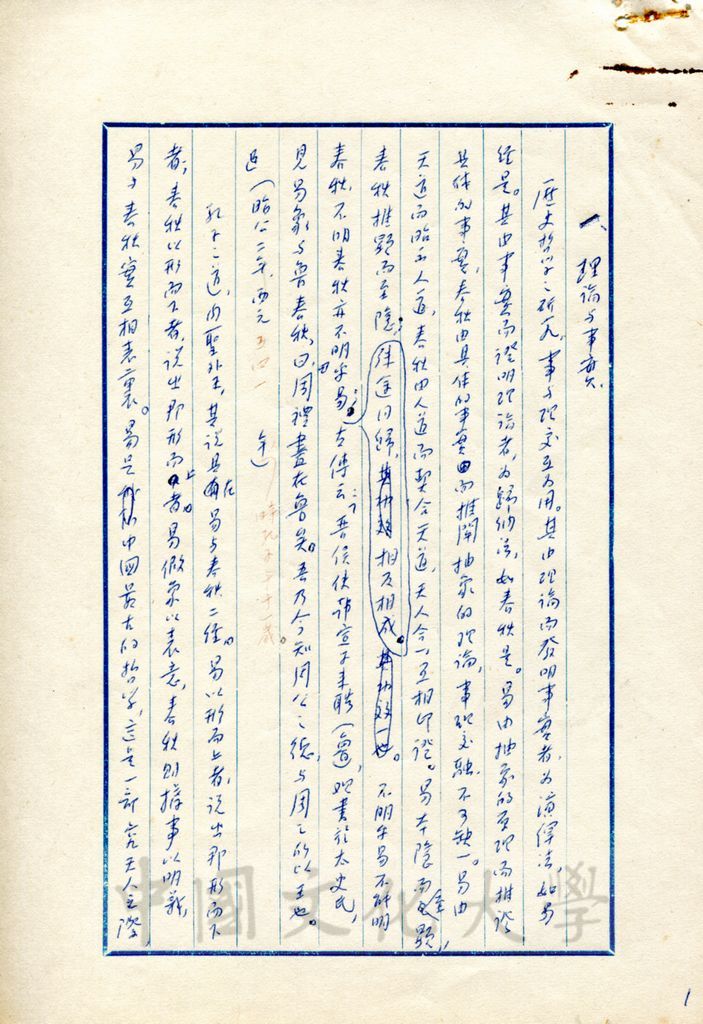 一、理論与事實
歷史哲学之研究,事与理交互为用。其由理論而發明事實者,为演繹法,如易
經是。其由事實而證明理論者,为歸納法,如春秋是。易由抽象的原理而推證
具体的事實,春秋由具体的事實而推闡抽象的理論,事理交融,不可缺一。易由
天道而昭示人道,春秋由人道而契合天道,天人合一,互相印證。易本隱而至顯,
春秋推顯而至隱;殊途同歸,相反相成。不明乎易不能明
春秋,不明春秋亦不明乎易。左傳云:「晋侯使韓宣子来聘(魯),观書於太史氏,
見易象与魯春秋,曰:周禮盡在魯矣。吾乃今知周公之德,与周之所以王也。
」(昭公二年,西元五四一 年)
孔子之道,内聖外王,其說具在易与春秋二經。易以形而上者,說出那形而下
者;春秋以形而下者,說出那形而上者。易假象以表意,春秋則藉事以明義,
易与春秋實互相表裏。易是中國最古的哲学,這是一部究天人之際,
中國文化大學
1